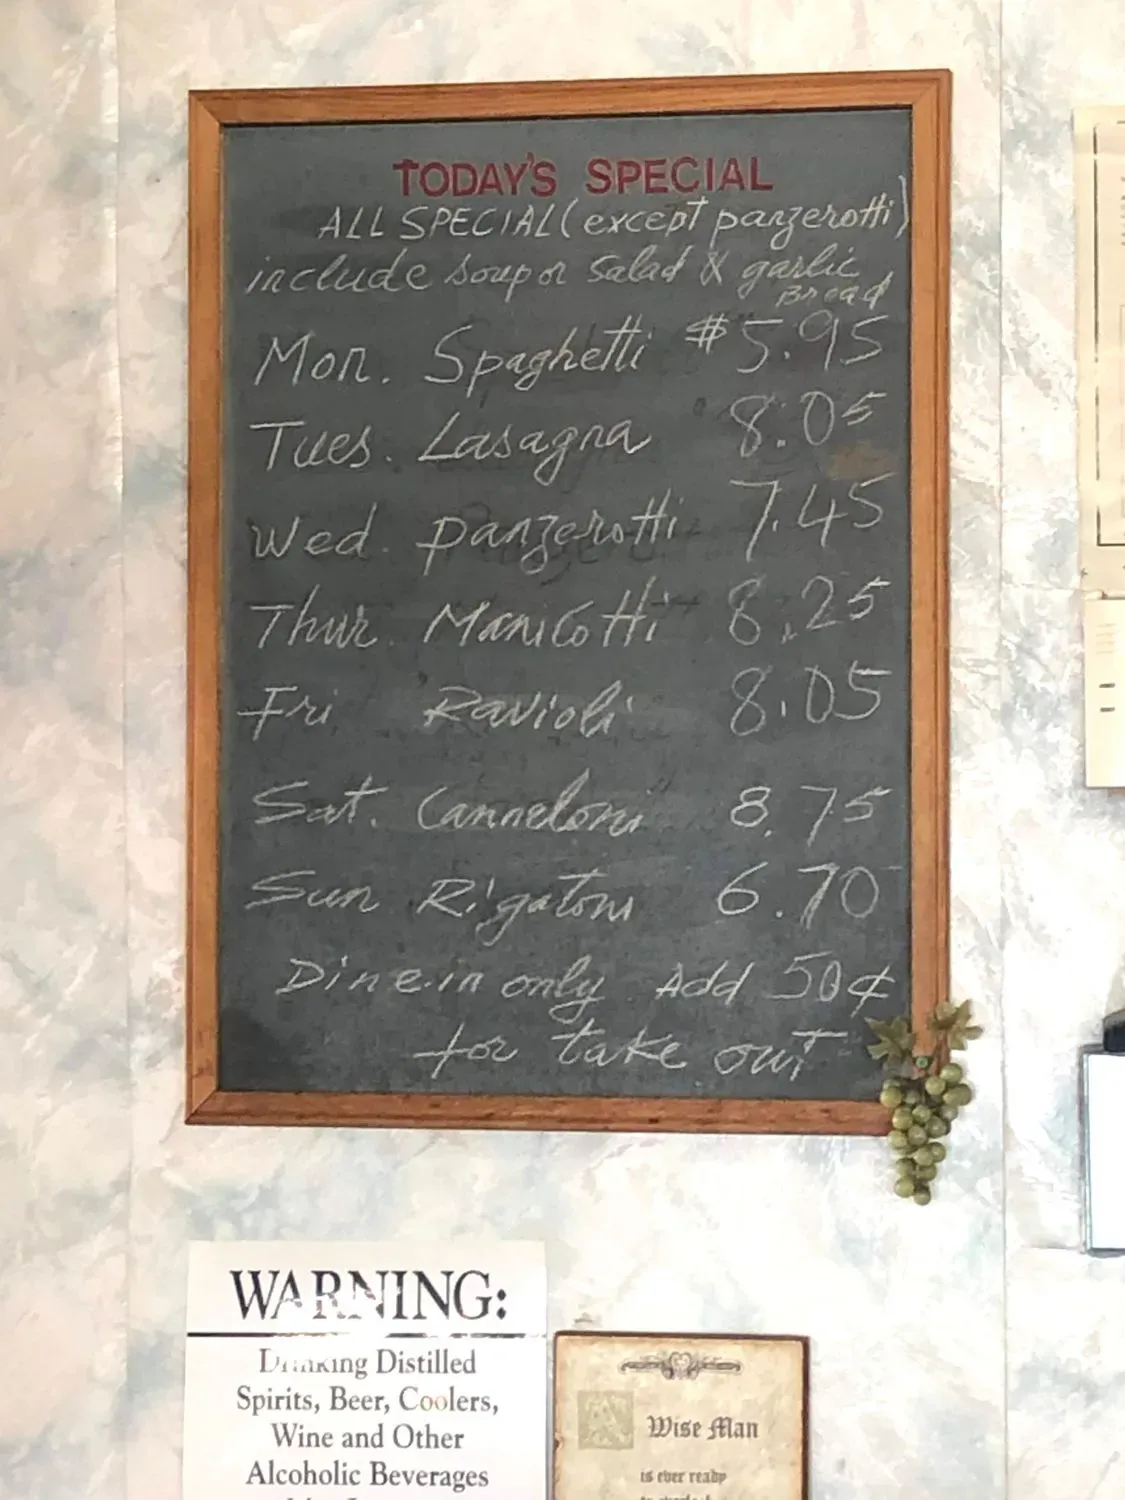 TODAY'S SPECIAL
ALL SPECIAL (except panzerotti)
include soup or salad & garlic
Bread
Mon. Spaghetti $5.95
Tues. Lasagna 8.05
Wed. panzerotti 7.45
Thur. Manicotti 8.25
Fri Ravioli 8.05
Sat. Canneloni 8.75
Sun Rigatoni 6.70
Dine-in only Add 50¢
for take out
WARNING:
Drinking Distilled
Spirits, Beer, Coolers,
Wine and Other
Alcoholic Beverages
A Wise Man
is ever ready